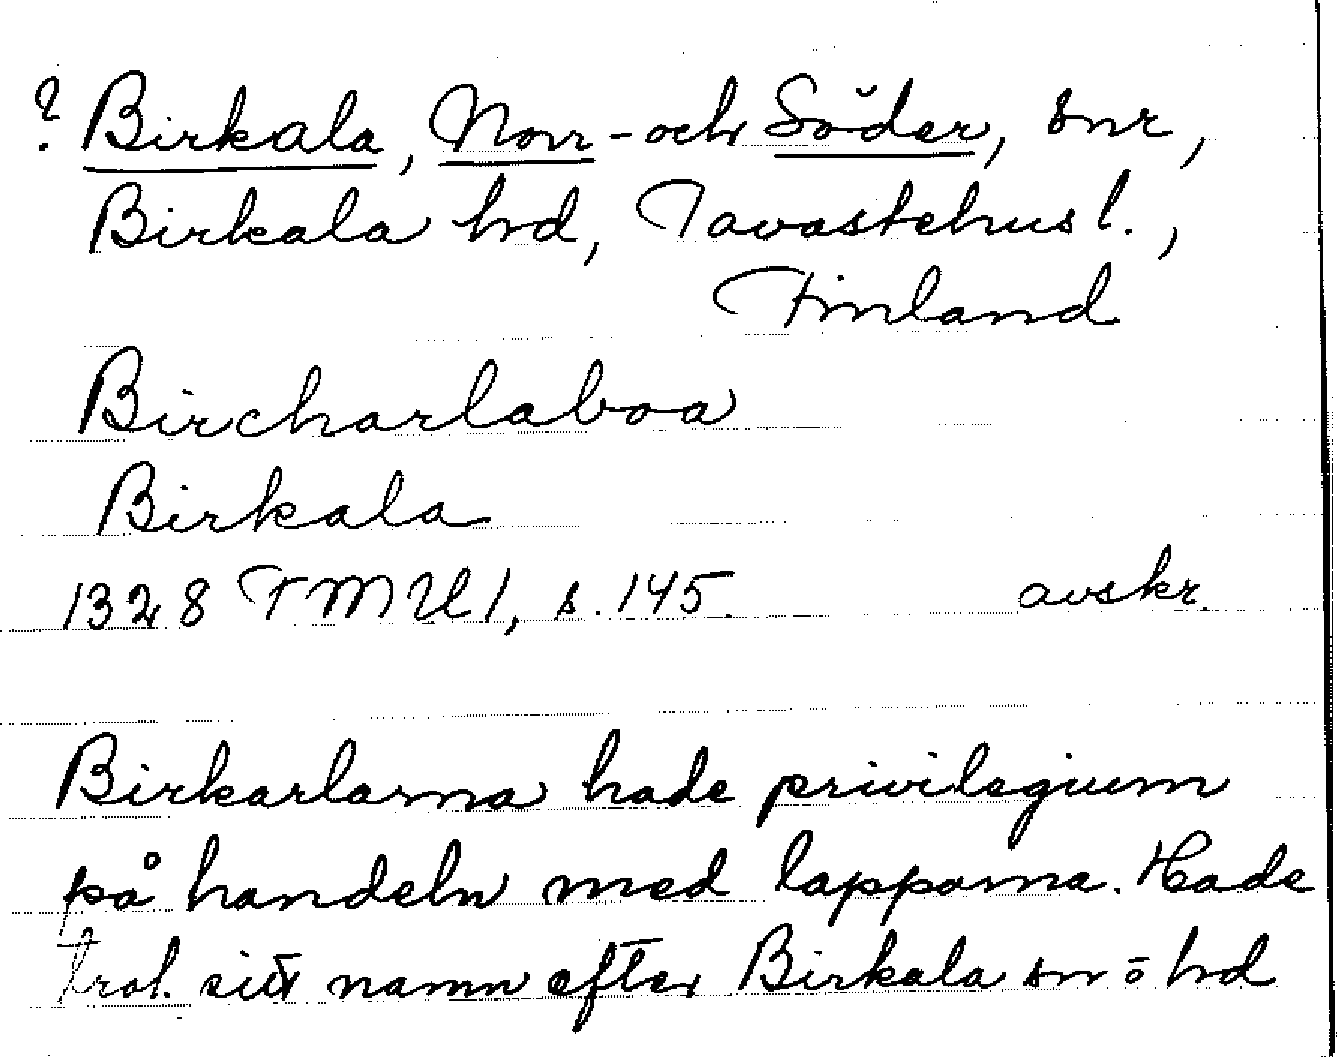 ? Birkala, Norr- och Söder, snr,
Birkala hd, Tavastehus l.,
Finland
Bircharlaboa
Birkala
1328 TMU 1, s. 145. avskr.
Birkarlarna hade privilegium
på handeln med lapparna. Hade
trol. sitt namn efter Birkala sn o hd